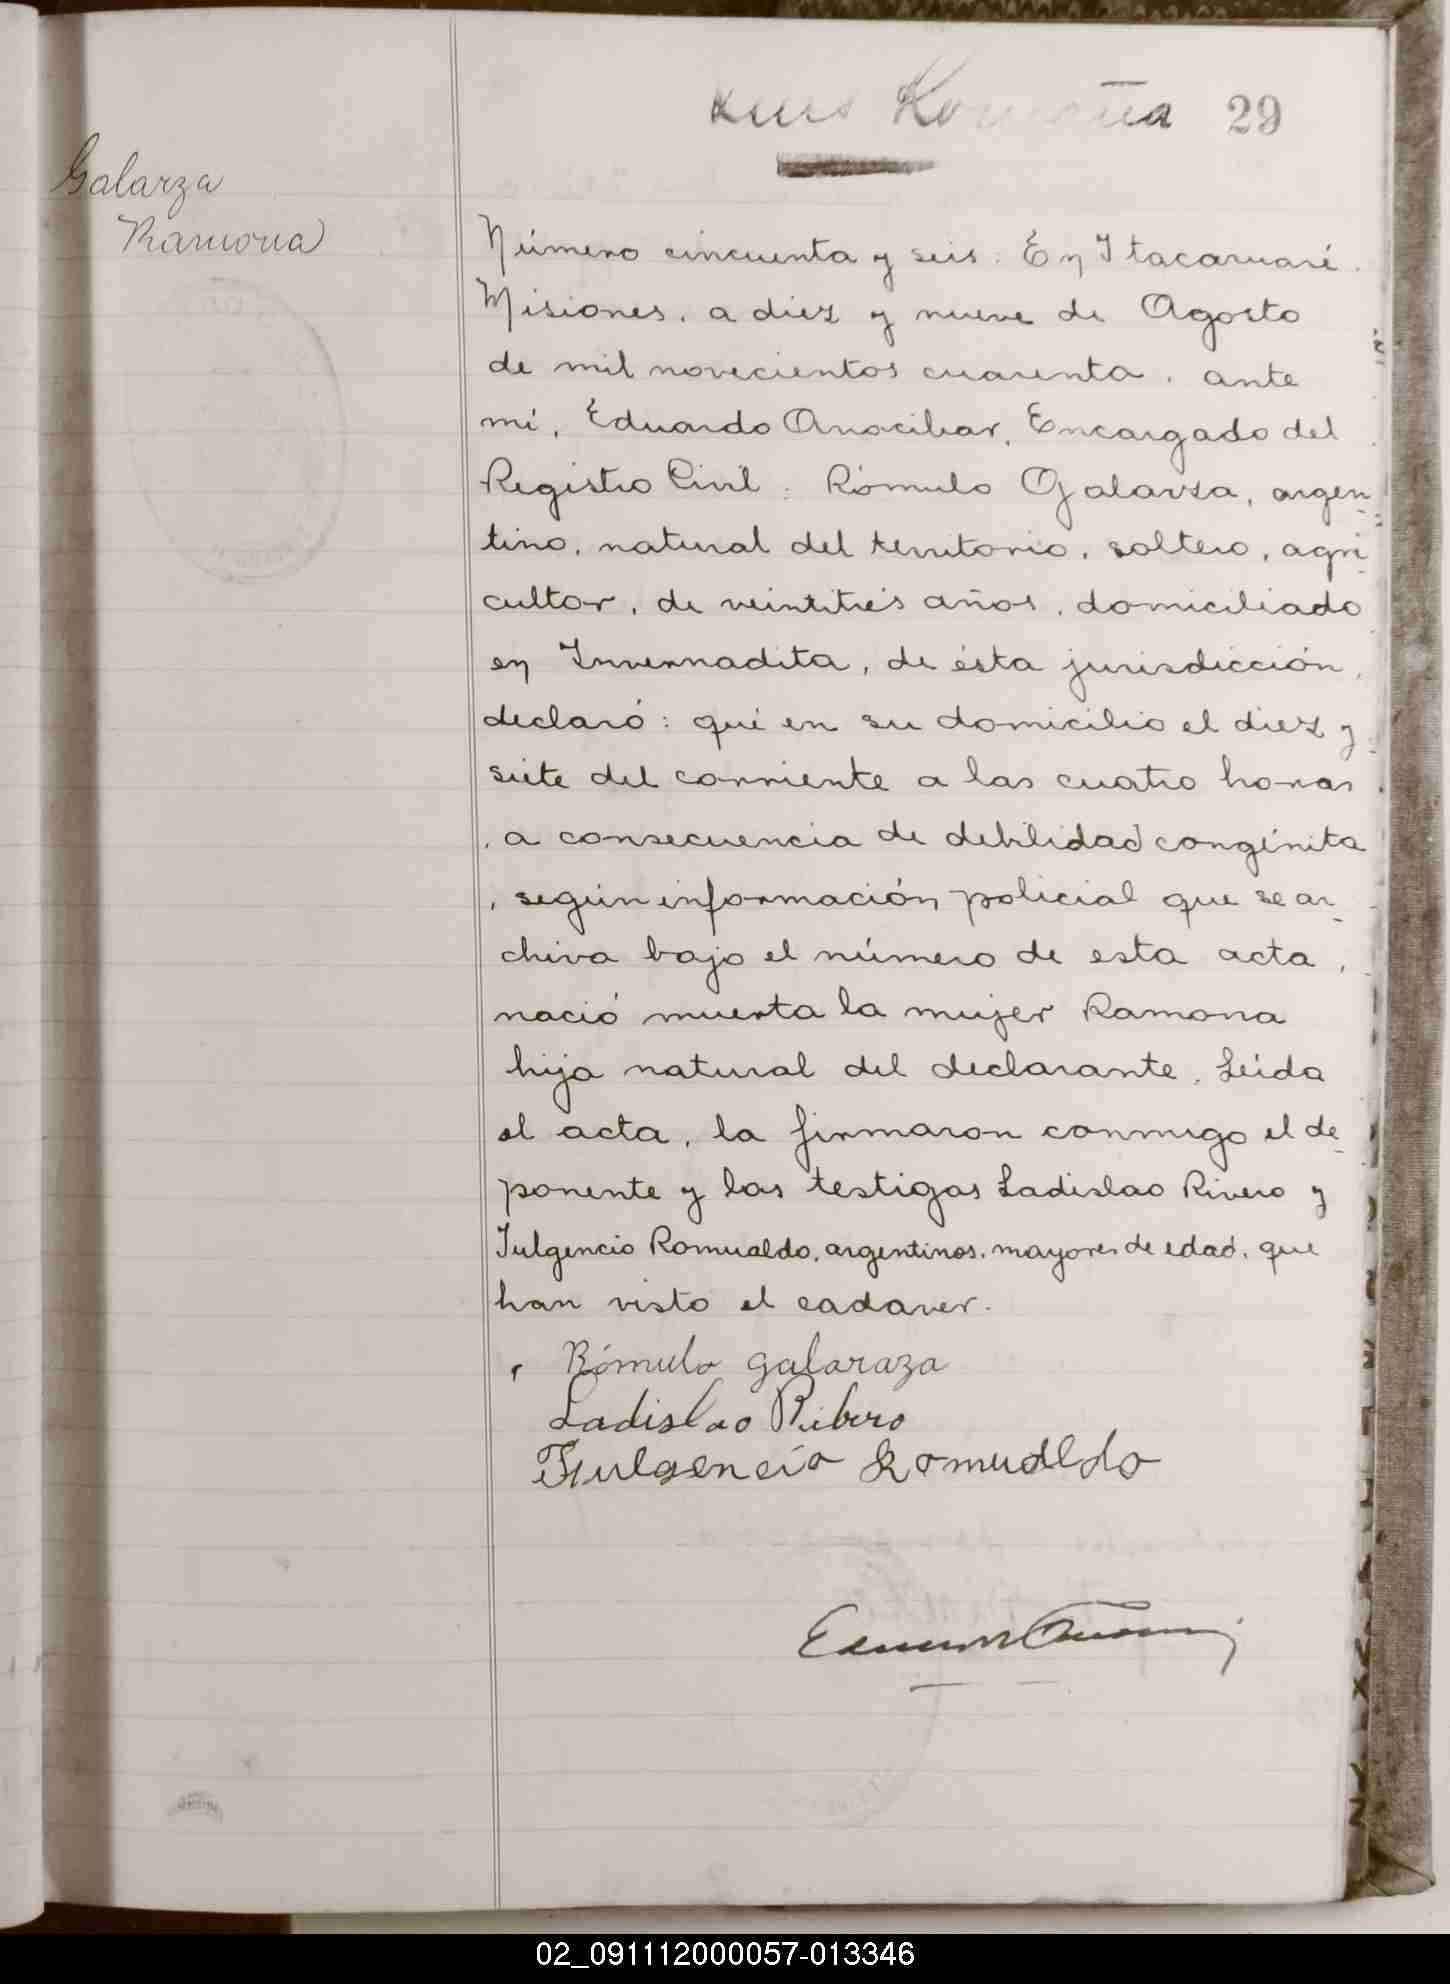 29
Galarza
Ramona
Número cincuenta y seis: En Itacaruaré.
Misiones, a diez y nueve de Agosto
de mil novecientos cuarenta, ante
mí, Eduardo Anocibar, Encargado del
Registro Civil: Rómulo Galarza, argen-
tino, natural del territorio, soltero, agri-
cultor, de veintitrés años, domiciliado
en Invernadita, de ésta jurisdicción,
declaró: que en su domicilio el diez y
siete del corriente a las cuatro horas
, a consecuencia de debilidad congénita
, según información policial que se ar-
chiva bajo el número de esta acta,
nació muerta la mujer Ramona
hija natural del declarante. Leída
el acta, la firmaron conmigo el de-
ponente y los testigos Ladislao Rivero y
Fulgencio Romualdo, argentinos, mayores de edad, que
han visto el cadaver.
Rómulo galaraza
Ladislao Ribero
Fulgencio Romualdo
02_091112000057-013346